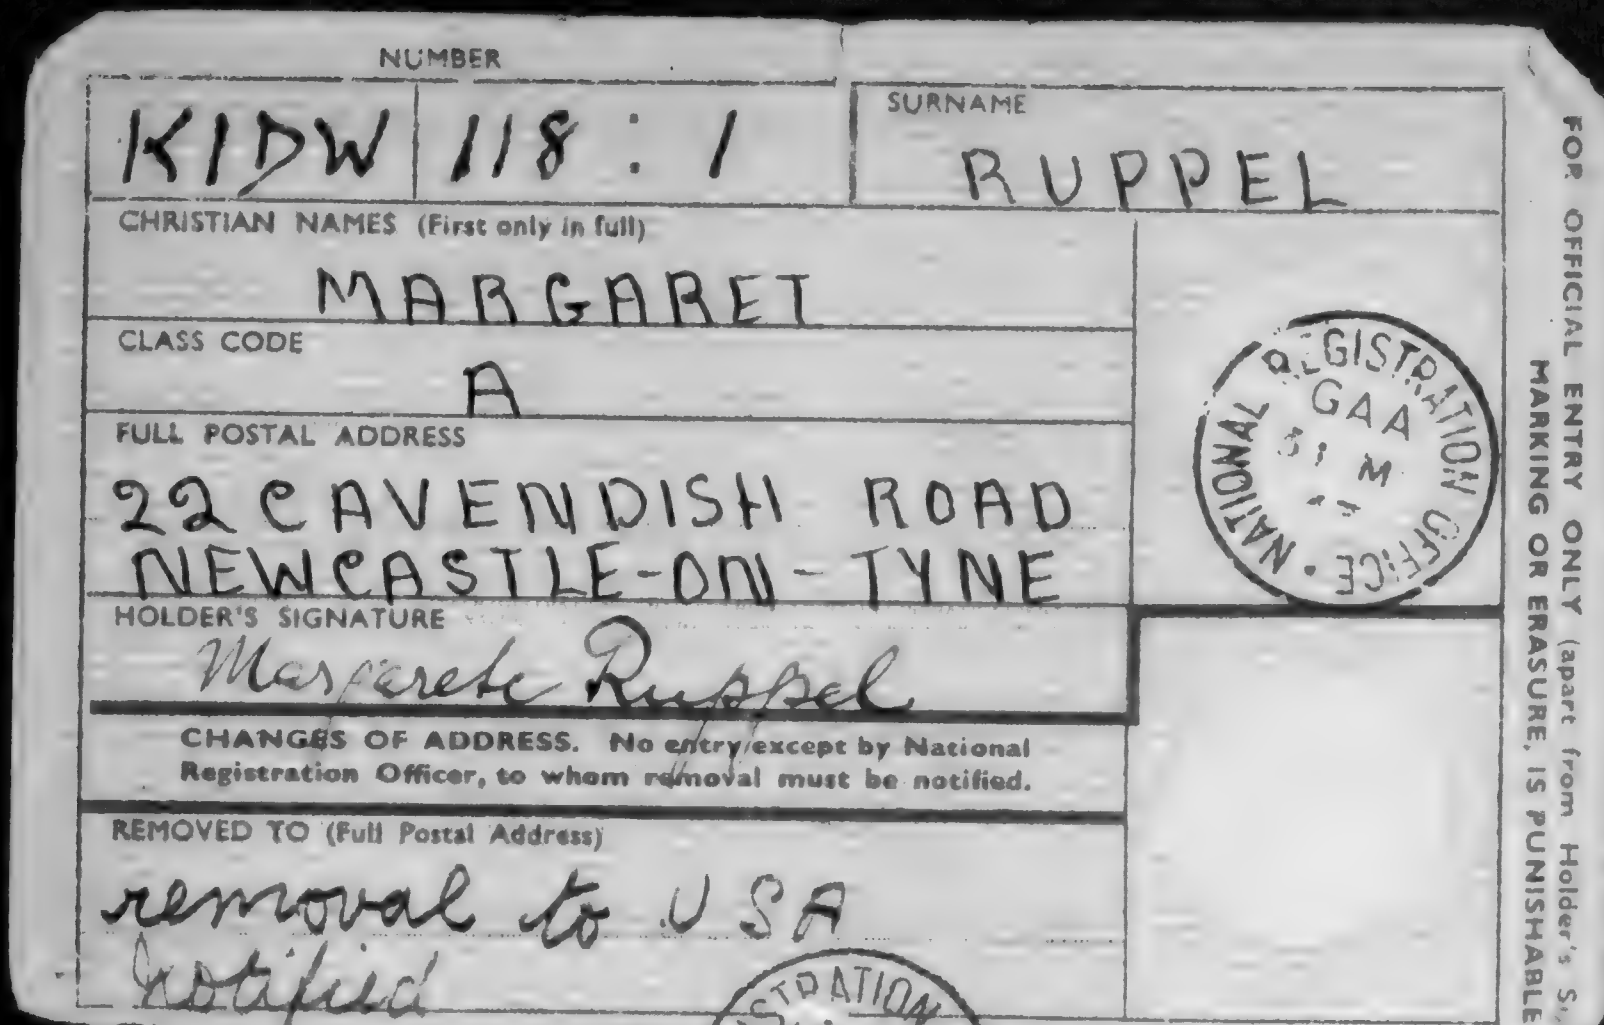 NUMBER
KIDW 118 : 1
SURNAME
RUPPEL
CHRISTIAN NAMES (First only in full)
MARGARET
CLASS CODE
A
FULL POSTAL ADDRESS
22 CAVENDISH ROAD
NEWCASTLE-ON-TYNE
HOLDER'S SIGNATURE
Margarete Ruppel
CHANGES OF ADDRESS. No entry except by National
Registration Officer, to whom removal must be notified.
REMOVED TO (Full Postal Address)
removal to USA
notified
NATIONAL REGISTRATION OFFICE
GAA
31 M
STRATION
FOR OFFICIAL ENTRY ONLY (apart from Holder's S
MARKING OR ERASURE, IS PUNISHABLE